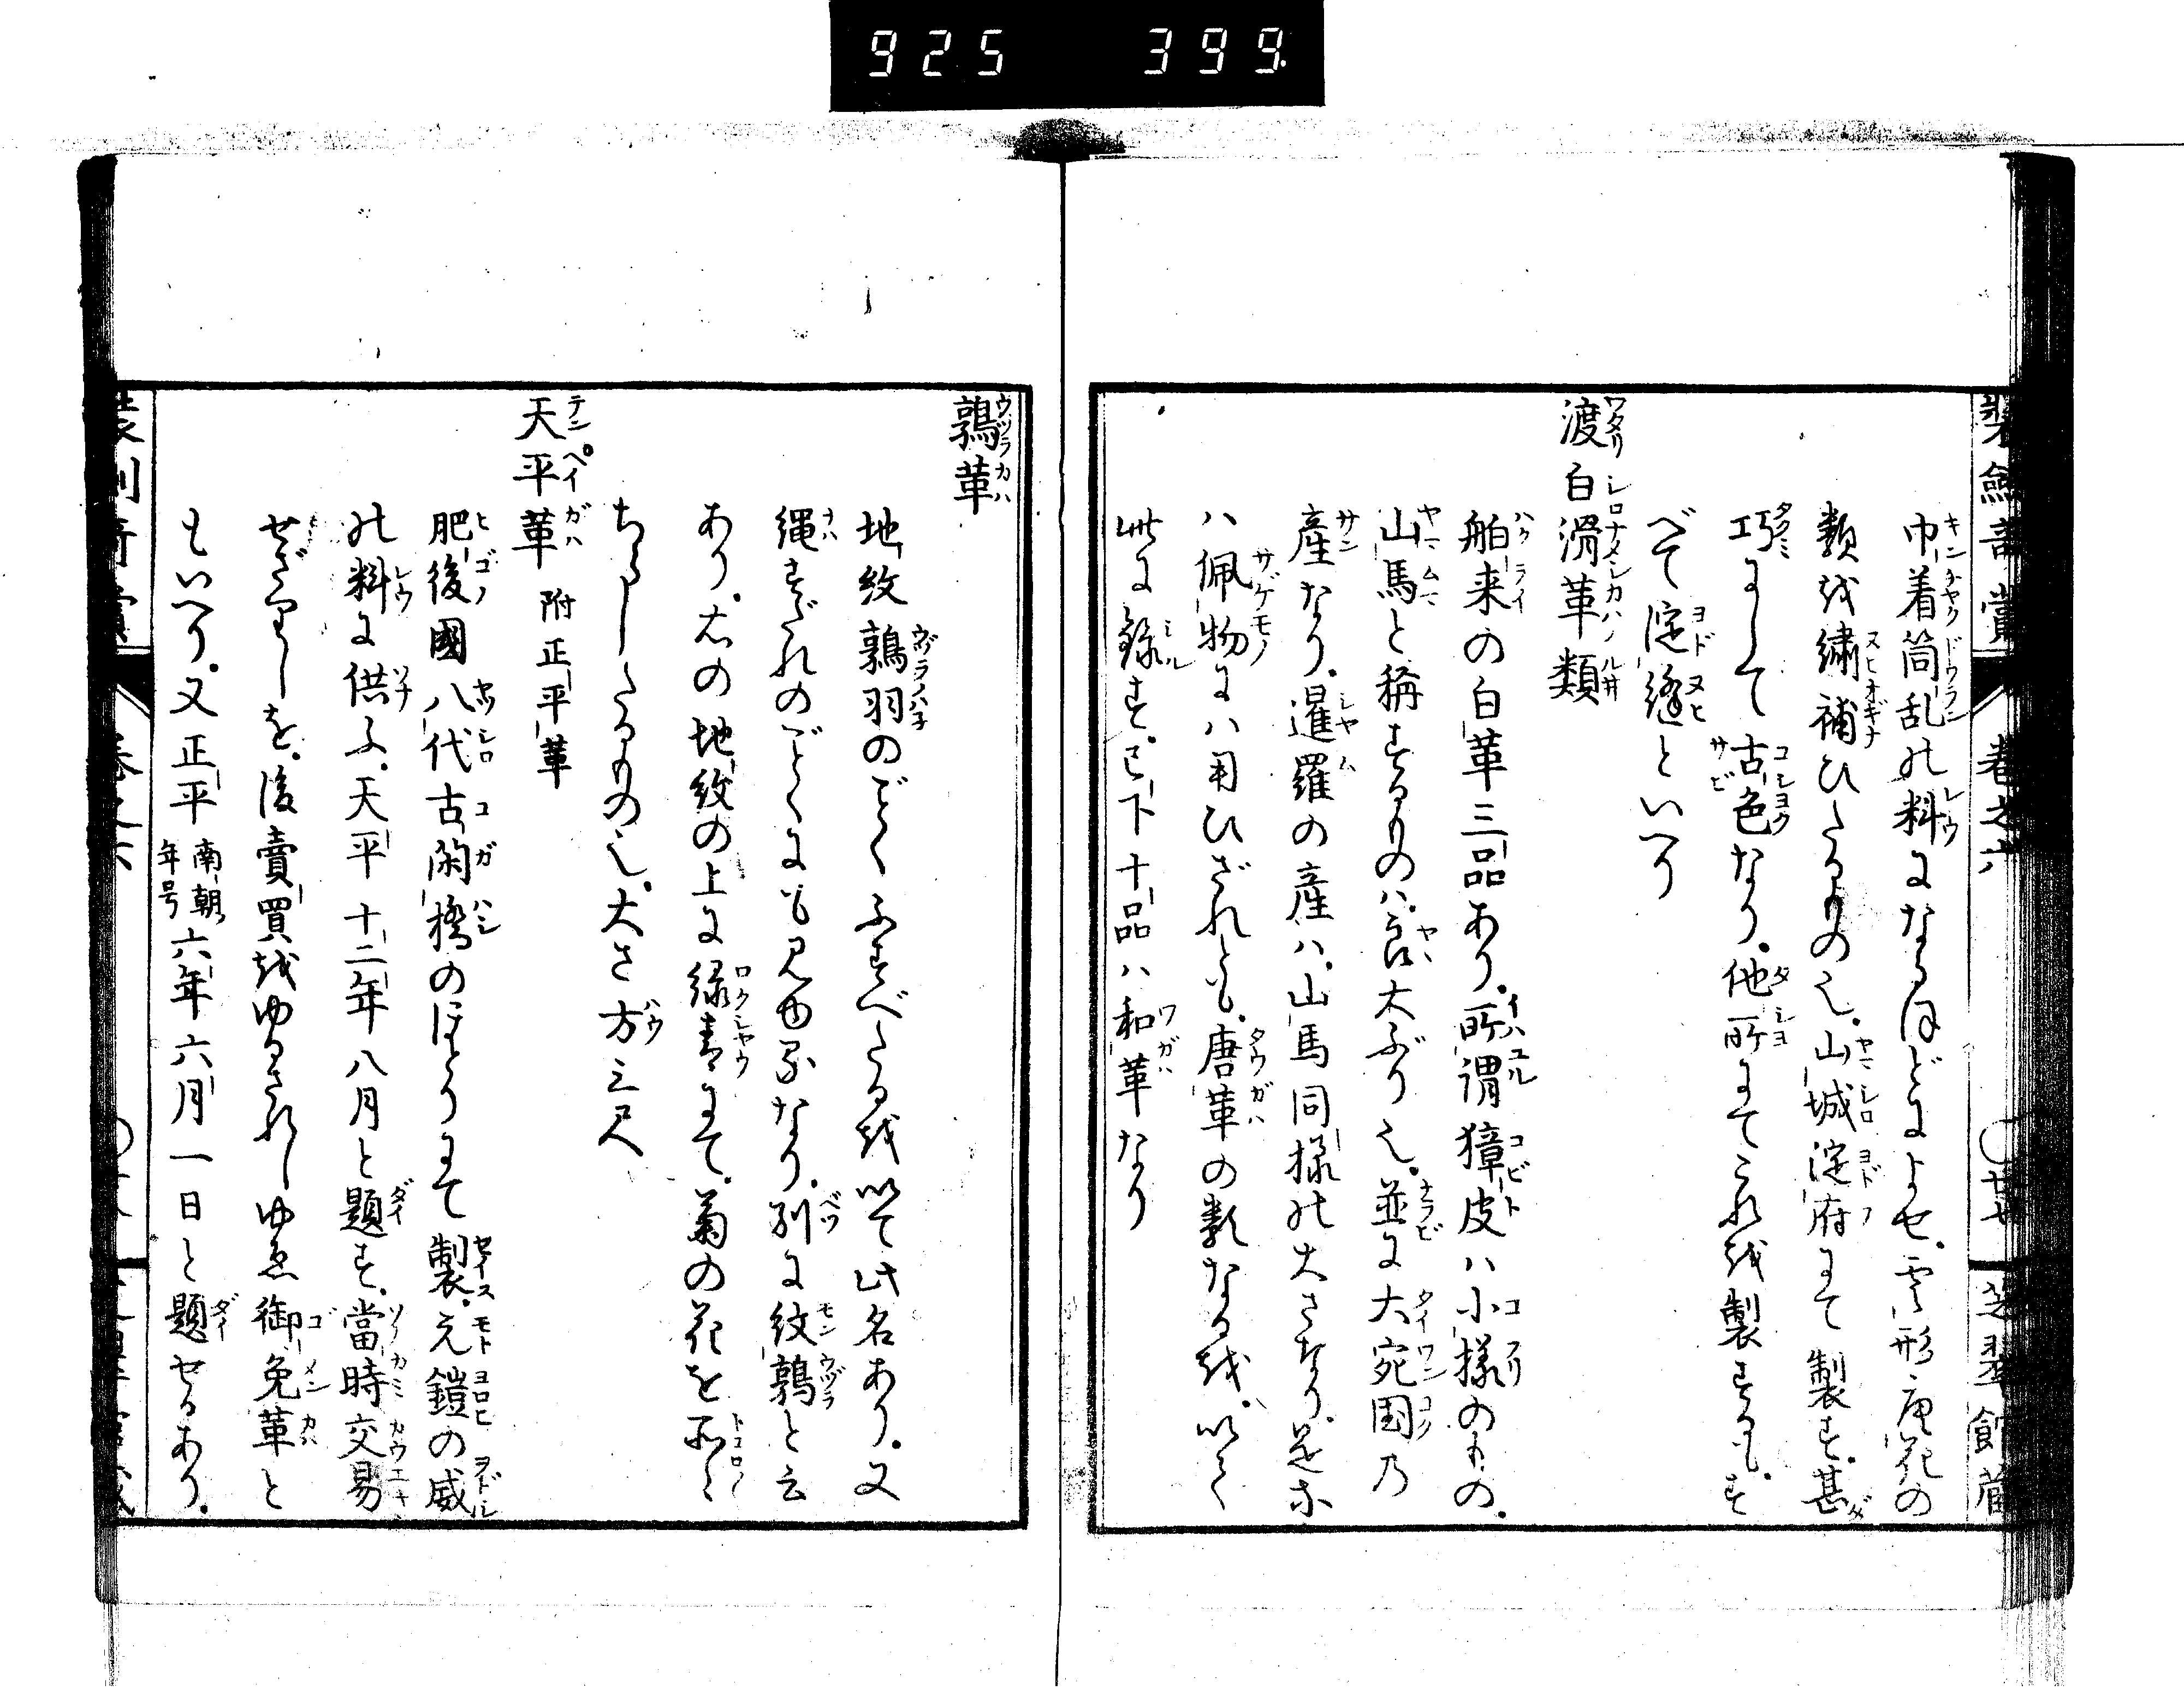 925 399
装劍奇賞 巻之六 ○廿七 芝翠館蔵
巾着筒乱の料になるほどによせ。雲形唐花の
類を繍補ひたるもの也。山城淀府にて製す。甚
巧にして古色なり。他所にてこれを製するも。す
べて淀縫といへり
渡白滑革類
舶来の白革三品あり。所謂獐皮ハ小様のもの。
山馬と称するものハ。良大ぶり也。並に大宛国乃
産なり。暹羅の産ハ。山馬同様の大さなり。是亦
ハ佩物にハ用ひざれとも。唐革の数なるを。以て
此に録す。已下十品ハ和革なり
鶉革
地紋鶉羽のごとくふすべたるを以て此名あり。又
縄すだれのごとくにも見ゆるなり。別に紋鶉と云
あり。右の地紋の上に緑青にて。菊の花を所々
ちらしたるもの也。大さ方三尺
天平革 附正平革
肥後國八代古閑橋のほとりにて製。元鎧の威
の料に供ふ。天平十二年八月と題す。當時交易
せざりしを。後賣買をゆるされしゆゑ御免革と
もいへり。又正平南朝年号六年六月一日と題せるあり。